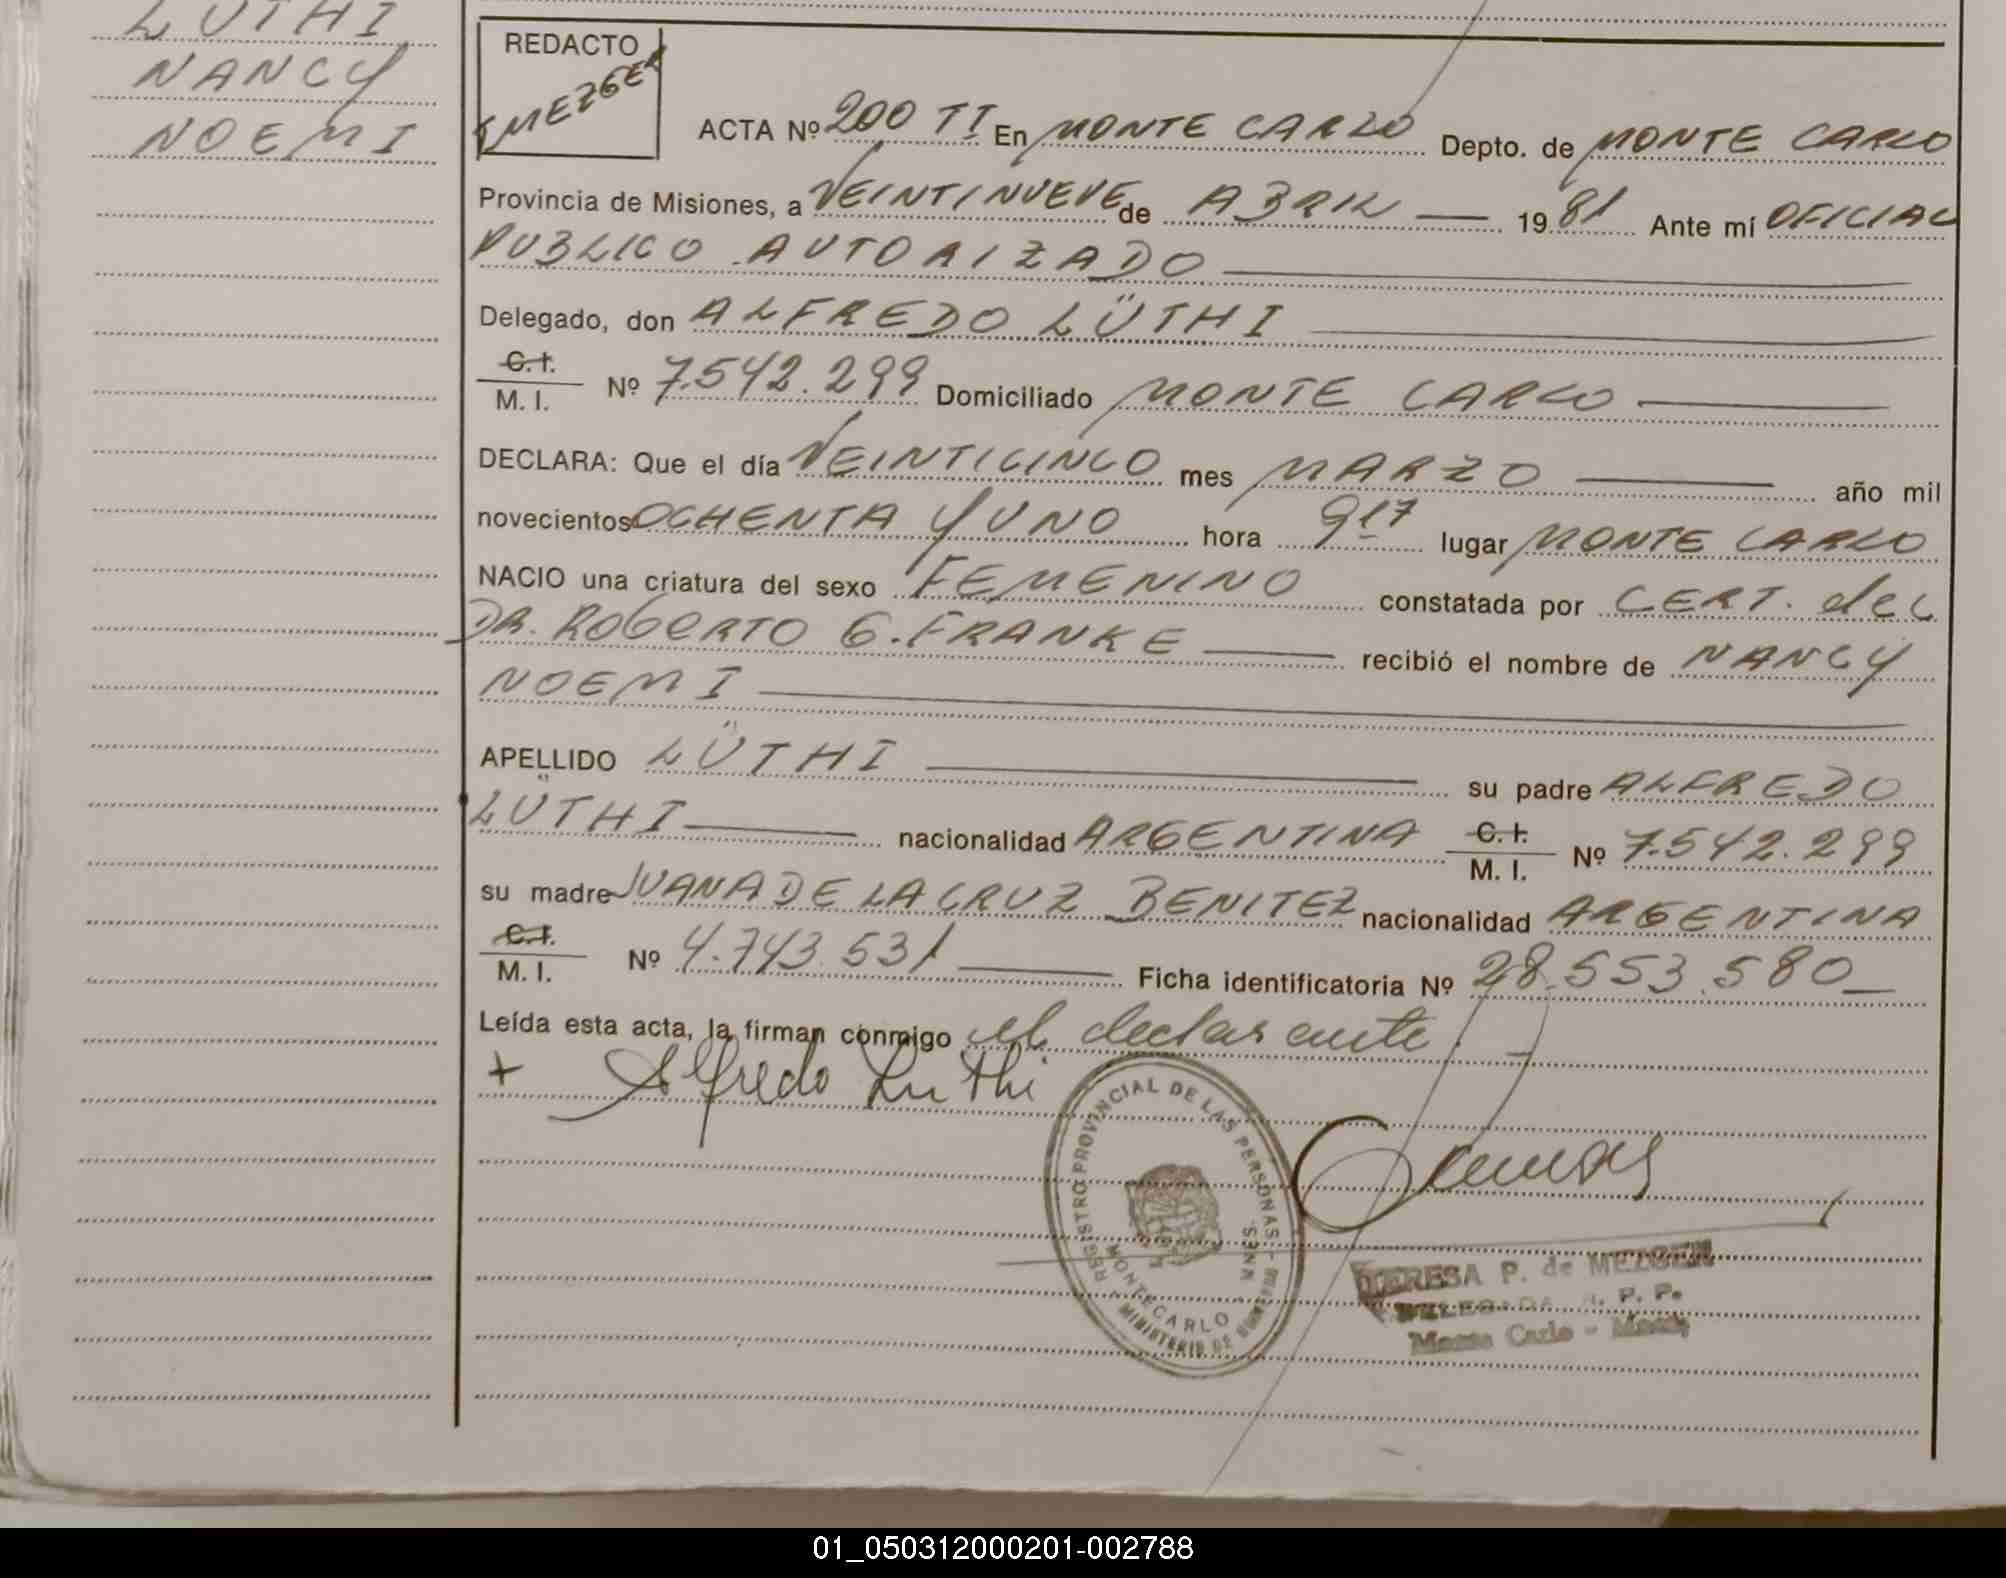 LUTHI
NANCY
NOEMI
REDACTO
TMEZGER
ACTA Nº 200 TI En MONTE CARLO Depto. de MONTE CARLO
Provincia de Misiones, a VEINTINUEVE de ABRIL 1981 Ante mí OFICIAL
PUBLICO AUTORIZADO
Delegado, don ALFREDO LÜTHI
C.I.
M. I. Nº 7.542.299 Domiciliado MONTE CARLO
DECLARA: Que el día VEINTICINCO mes MARZO año mil
novecientos OCHENTA Y UNO hora 9 17 lugar MONTE CARLO
NACIO una criatura del sexo FEMENINO constatada por CERT. del
DR. ROBERTO G. FRANKE recibió el nombre de NANCY
NOEMI
APELLIDO LÜTHI su padre ALFREDO
LÜTHI nacionalidad ARGENTINA C.I. M. I. Nº 7.542.299
su madre JUANA DE LA CRUZ BENITEZ nacionalidad ARGENTINA
C.I.
M. I. Nº 4.743.531 Ficha identificatoria Nº 28.553.580
Leída esta acta, la firman conmigo el declarante.
+ Alfredo Luthi
REGISTRO PROVINCIAL DE LAS PERSONAS
MONTECARLO
MINISTERIO DE
TERESA P. de MEZGER
DELEGADA R. P. P.
Monte Carlo - Mnes.
01_050312000201-002788